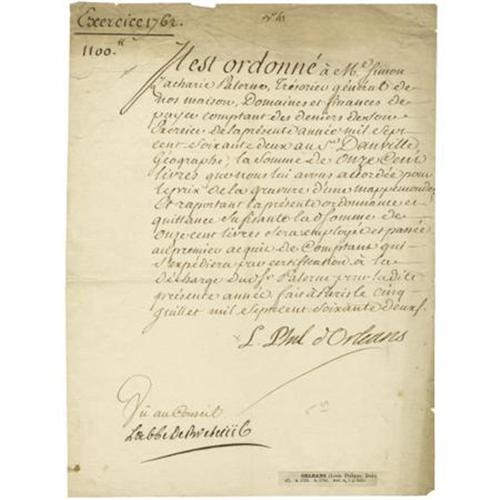 Exercice 1762.
1100.ᵗᵗ
Il est ordonné à M.ᵉ Simon
Zacharie Palerne, Trésorier général de
nos maison, Domaines et finances de
payer comptant des deniers de son
Exercice de la présente année mil sept
cent soixante deux au S.ʳ Danville
Géographe, la Somme de onze cent
livres que nous lui avons accordée pour
le prix de la gravure d'une mappemonde
Et raportant la présente ordonnance et
quittance suffisante la d. Somme de
onze cent livres sera employée et passée
au premier acquit de Comptant qui
s'expédiera par certification à la
décharge dud. S.ʳ Palerne pour la dite
présente année fait à Paris le cinq
juillet mil sept cent soixante deux.
L. Phil d'Orleans
Vû au Conseil
L'abbé de Breteüil
ORLEANS (Louis Philippe, Duc)